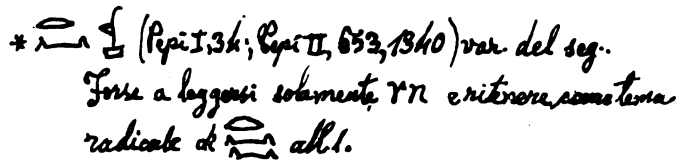 * (Pepi I, 34; Pepi II, 653, 1340) var. del seg.
Forse a leggersi solamente rn e ritenere, come tema
radicale di all 1.